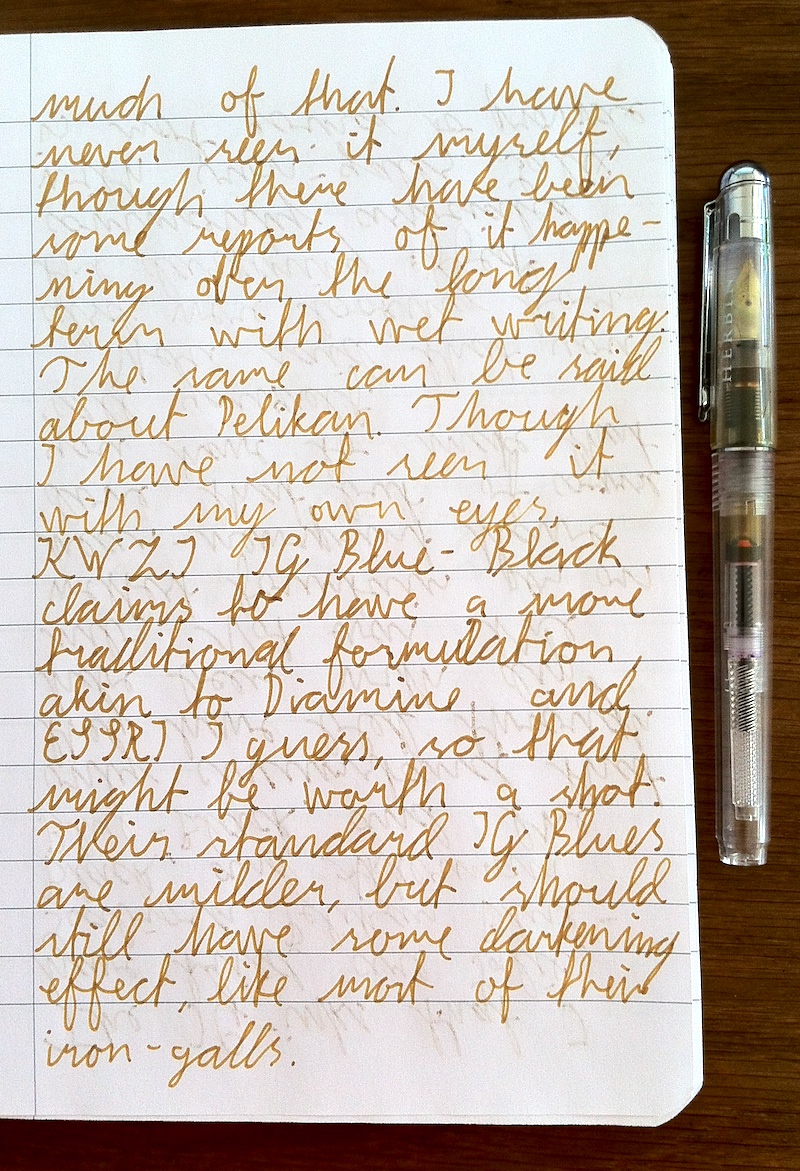 much of that. I have
never seen it myself,
though there have been
some reports of it happe-
ning over the long
term with wet writing.
The same can be said
about Pelikan. Though
I have not seen it
with my own eyes.
KWZI IG Blue-Black
claims to have a more
traditional formulation,
akin to Diamine and
ESSRI I guess, so that
might be worth a shot.
Their standard IG Blues
are milder, but should
still have some darkening
effect, like most of their
iron-galls.
HERBIN